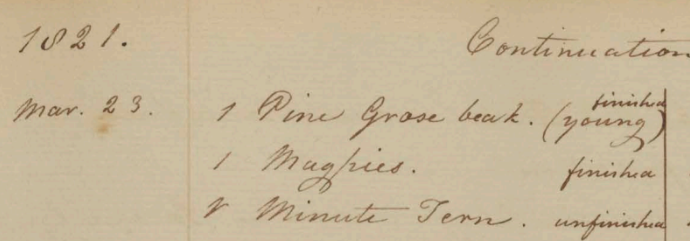 1821. Continuation
Mar. 23. 1 Pine Grosebeak. (young) finished
1 Magpies. finished
Minute Tern. unfinished